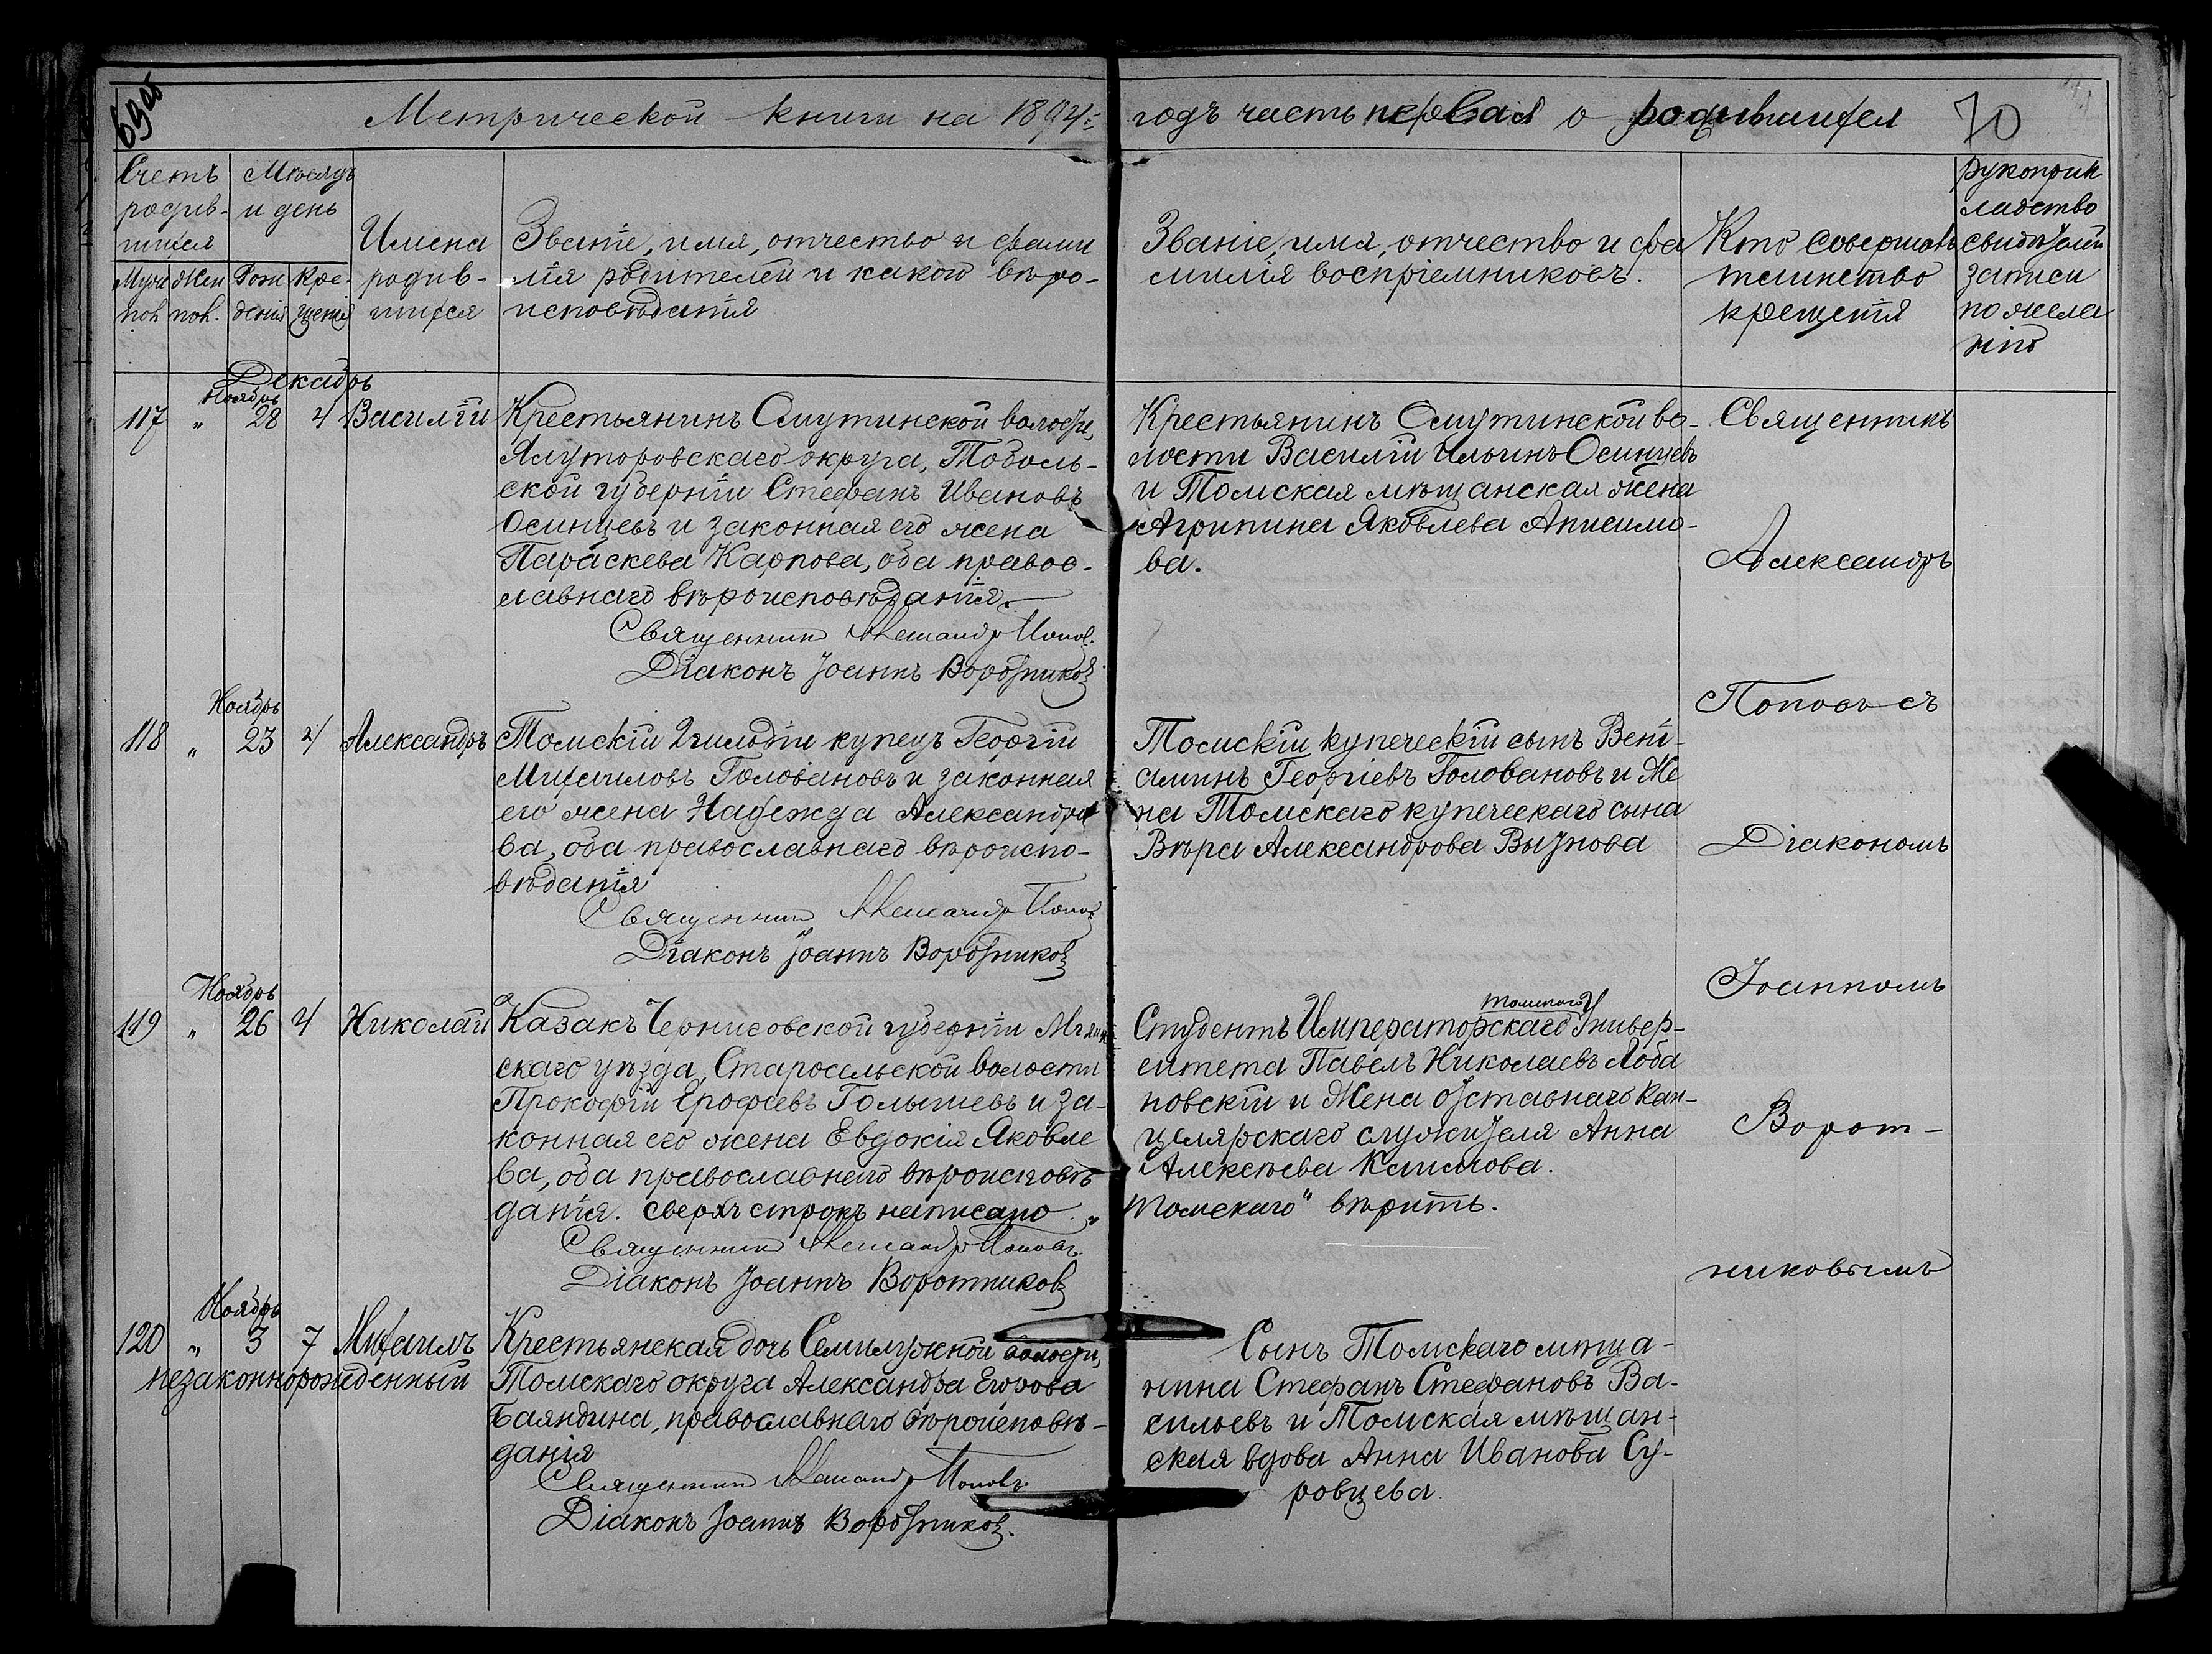 69 об
Метрической книги на 1894й годъ часть первая о родившихся 70
Счетъ родив-шихся
Муж пол. Жен пол.
Мѣсяцъ и день
Рож денія Кре-щенія
Имена родив-шихся
Званіе, имя, отчество и фами
лія родителей и какого вѣро-
исповѣданія
Званіе, имя, отчество и фа
милія воспріемниковъ.
Кто совершалъ
таинство
крещенія
рукоприк
ладство
свидѣтелей
записи
по жела
нію
Декабрь
Ноябрь
117 „ 28 4 Василій
Крестьянинъ Омутинской волости,
Ялуторовскаго округа, Тоболь-
ской губерніи Стефанъ Ивановъ
Осинцевъ и законная его жена
Параскева Карпова, оба правос-
лавнаго вѣроисповѣданія.
Священник Александр Попов.
Діаконъ Іоаннъ Воротников
Крестьянинъ Омутинской во-
лости Василій Ильинъ Осинцевъ
и Томская мѣщанская жена
Агрипина Яковлева Анисимо-
ва.
Ноябрь
118 „ 23 4 Александръ
Томскій 2 гильдіи купецъ Георгій
Михаиловъ Головановъ и законная
его жена Надежда Александро
ва, оба православнаго вѣроиспо-
вѣданія
Священник Александр Попов
Діаконъ Іоаннъ Воротников
Томскій купеческій сынъ Вені-
аминъ Георгіевъ Головановъ и Же
на Томскаго купеческаго сына
Вѣра Александрова Вытнова
Ноябрь
119 „ 26 4 Николай
Казакъ Черниговской губерніи Мглин
скаго уѣзда, Старосельской волости
Прокофій Ерофеевъ Голышевъ и за-
конная его жена Евдокія Яковле
ва, оба православнаго вѣроисповѣ
данія. Сверхъ строкъ написано „Томскаго“ вѣрить.
Священник Александр Поповъ.
Діаконъ Іоаннъ Воротников
томскаго
Студентъ Императорскаго Универ-
ситета Павелъ Николаевъ Лоба
новскій и Жена отставнаго кан-
целярскаго служителя Анна
Алексѣева Климова.
Ноябрь
120 „ 3 7 Михаилъ
незаконнорожденный
Крестьянская дочь Семилужной волости,
Томскаго округа Александра Егорова
Баяндина, православнаго вѣроисповѣ-
данія
Священник Александр Поповъ.
Діаконъ Іоаннъ Воротников.
Сынъ Томскаго мѣща-
нина Стефанъ Стефановъ Ва-
сильевъ и Томская мѣщан-
ская вдова Анна Иванова Су-
ровцева.
Священникъ
Александръ
Поповъ съ
Діакономъ
Іоанномъ
Ворот-
никовымъ